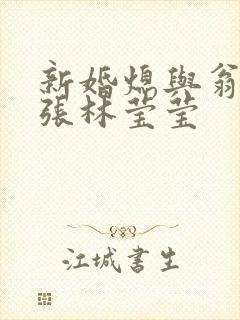 新婚媳與翁
張林莹莹
江城書生